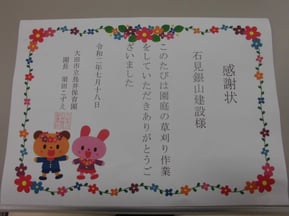 感謝状
石見銀山建設様
このたびは園庭の草刈り作業
をしていただきありがとうご
ざいました
令和二年七月十八日
大田市立鳥井保育園
園長 栗田こずえ